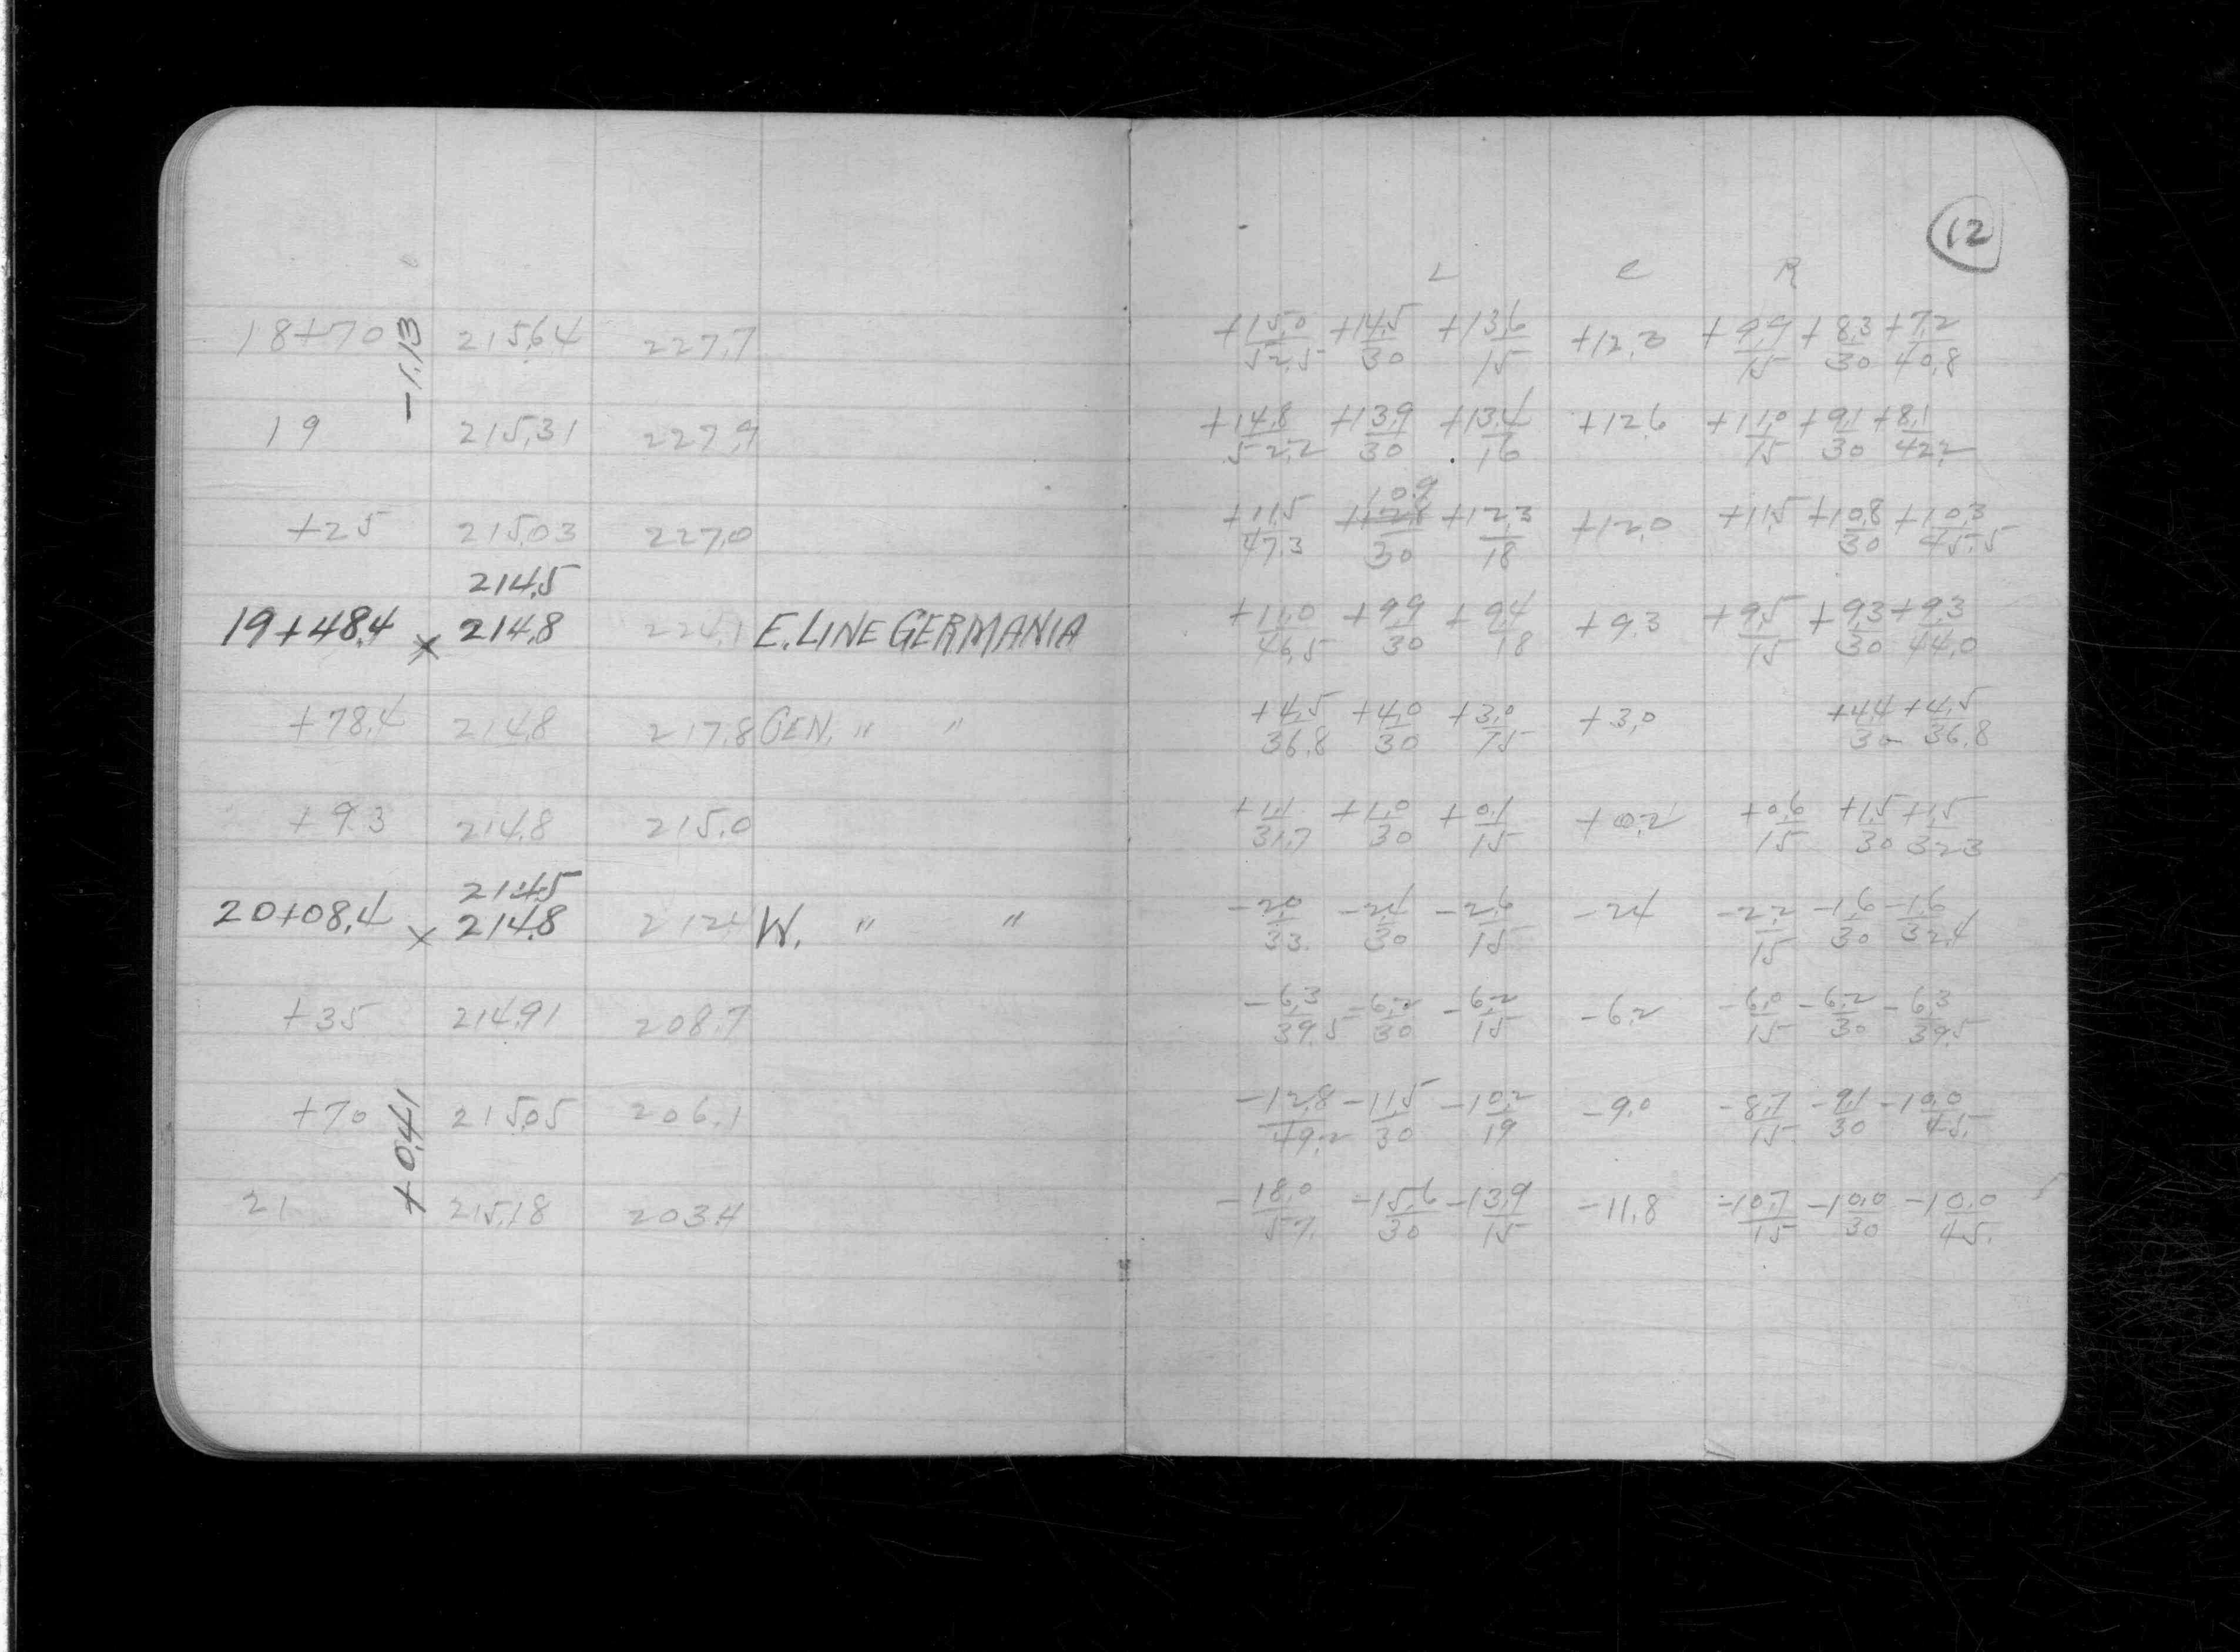 12
L C R
18+70 -1.13 215.64 227.7 +15.0/52.5 +14.5/30 +13.6/15 +9.9/15 +8.3/30 +7.2/40.8
19 215.31 227.9 +14.8/52.2 +13.9/30 +13.4/16 +12.6 +11.0/15 +9.1/30 +8.1/42.2
10.9
+25 215.03 227.0 +11.5/47.3 /30 +12.3/18 +12.0 +11.5 +10.8/30 +10.3/45.5
214.5
19+48.4 x 214.8 224.1 E. LINE GERMANIA +11.0/46.5 +9.9/30 +9.4/18 +9.3 +9.5/15 +9.3/30 +9.3/44.0
+78.4 214.8 217.8 CEN. " " +4.5/36.8 +4.0/30 +3.0/15 +3.0 +4.4/30 +4.5/36.8
+93 214.8 215.0 +1.1/31.7 +1.0/30 +0.1/15 +0.2 +0.6/15 +1.5/30 +1.5/32.3
214.5
20+08.4 x 214.8 212.4 W. " " -2.0/33. -2.4/30 -2.6/15 -2.4 -2.2/15 -1.6/30 -1.6/32.4
+35 214.91 208.7 -6.3/39.5 -6.2/30 -6.2/15 -6.2 -6.0/15 -6.2/30 -6.3/39.5
+70 +0.41 215.05 206.1 -12.8/49.2 -11.5/30 -10.2/19 -9.0 -8.7/15 -9.1/30 -10.0/45.
21 215.18 203.4 -18.0/57. -15.6/30 -13.9/15 -11.8 -10.7/15 -10.0/30 -10.0/45.